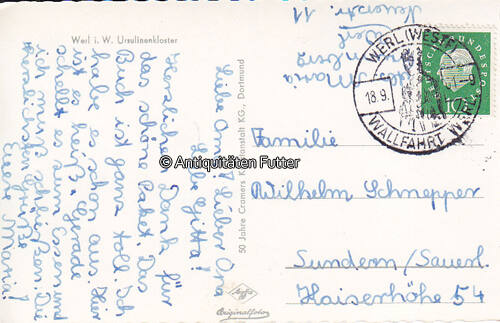 Werl i. W. Ursulinenkloster
Liebe Oma! Lieber Opa
Liebe Gitta!
Herzlichen Dank für
das schöne Paket. Das
Buch ist ganz toll. Ich
habe es schon aus. Hier
ist es heiß. Gerade
schellt es zum Essen und
ich muß schließen. Die
herzlichsten Grüße
Eure Maria!
50 Jahre Cramers Kunstanstalt KG., Dortmund
Originalfoto
© Antiquitäten Futter
Maria
Werl
WERL (WESTF)
18.9.
WALLFAHRT
DEUTSCHE BUNDESPOST
10
Familie
Wilhelm Schnepper
Sundern/Sauerl.
Kaiserhöhe 54